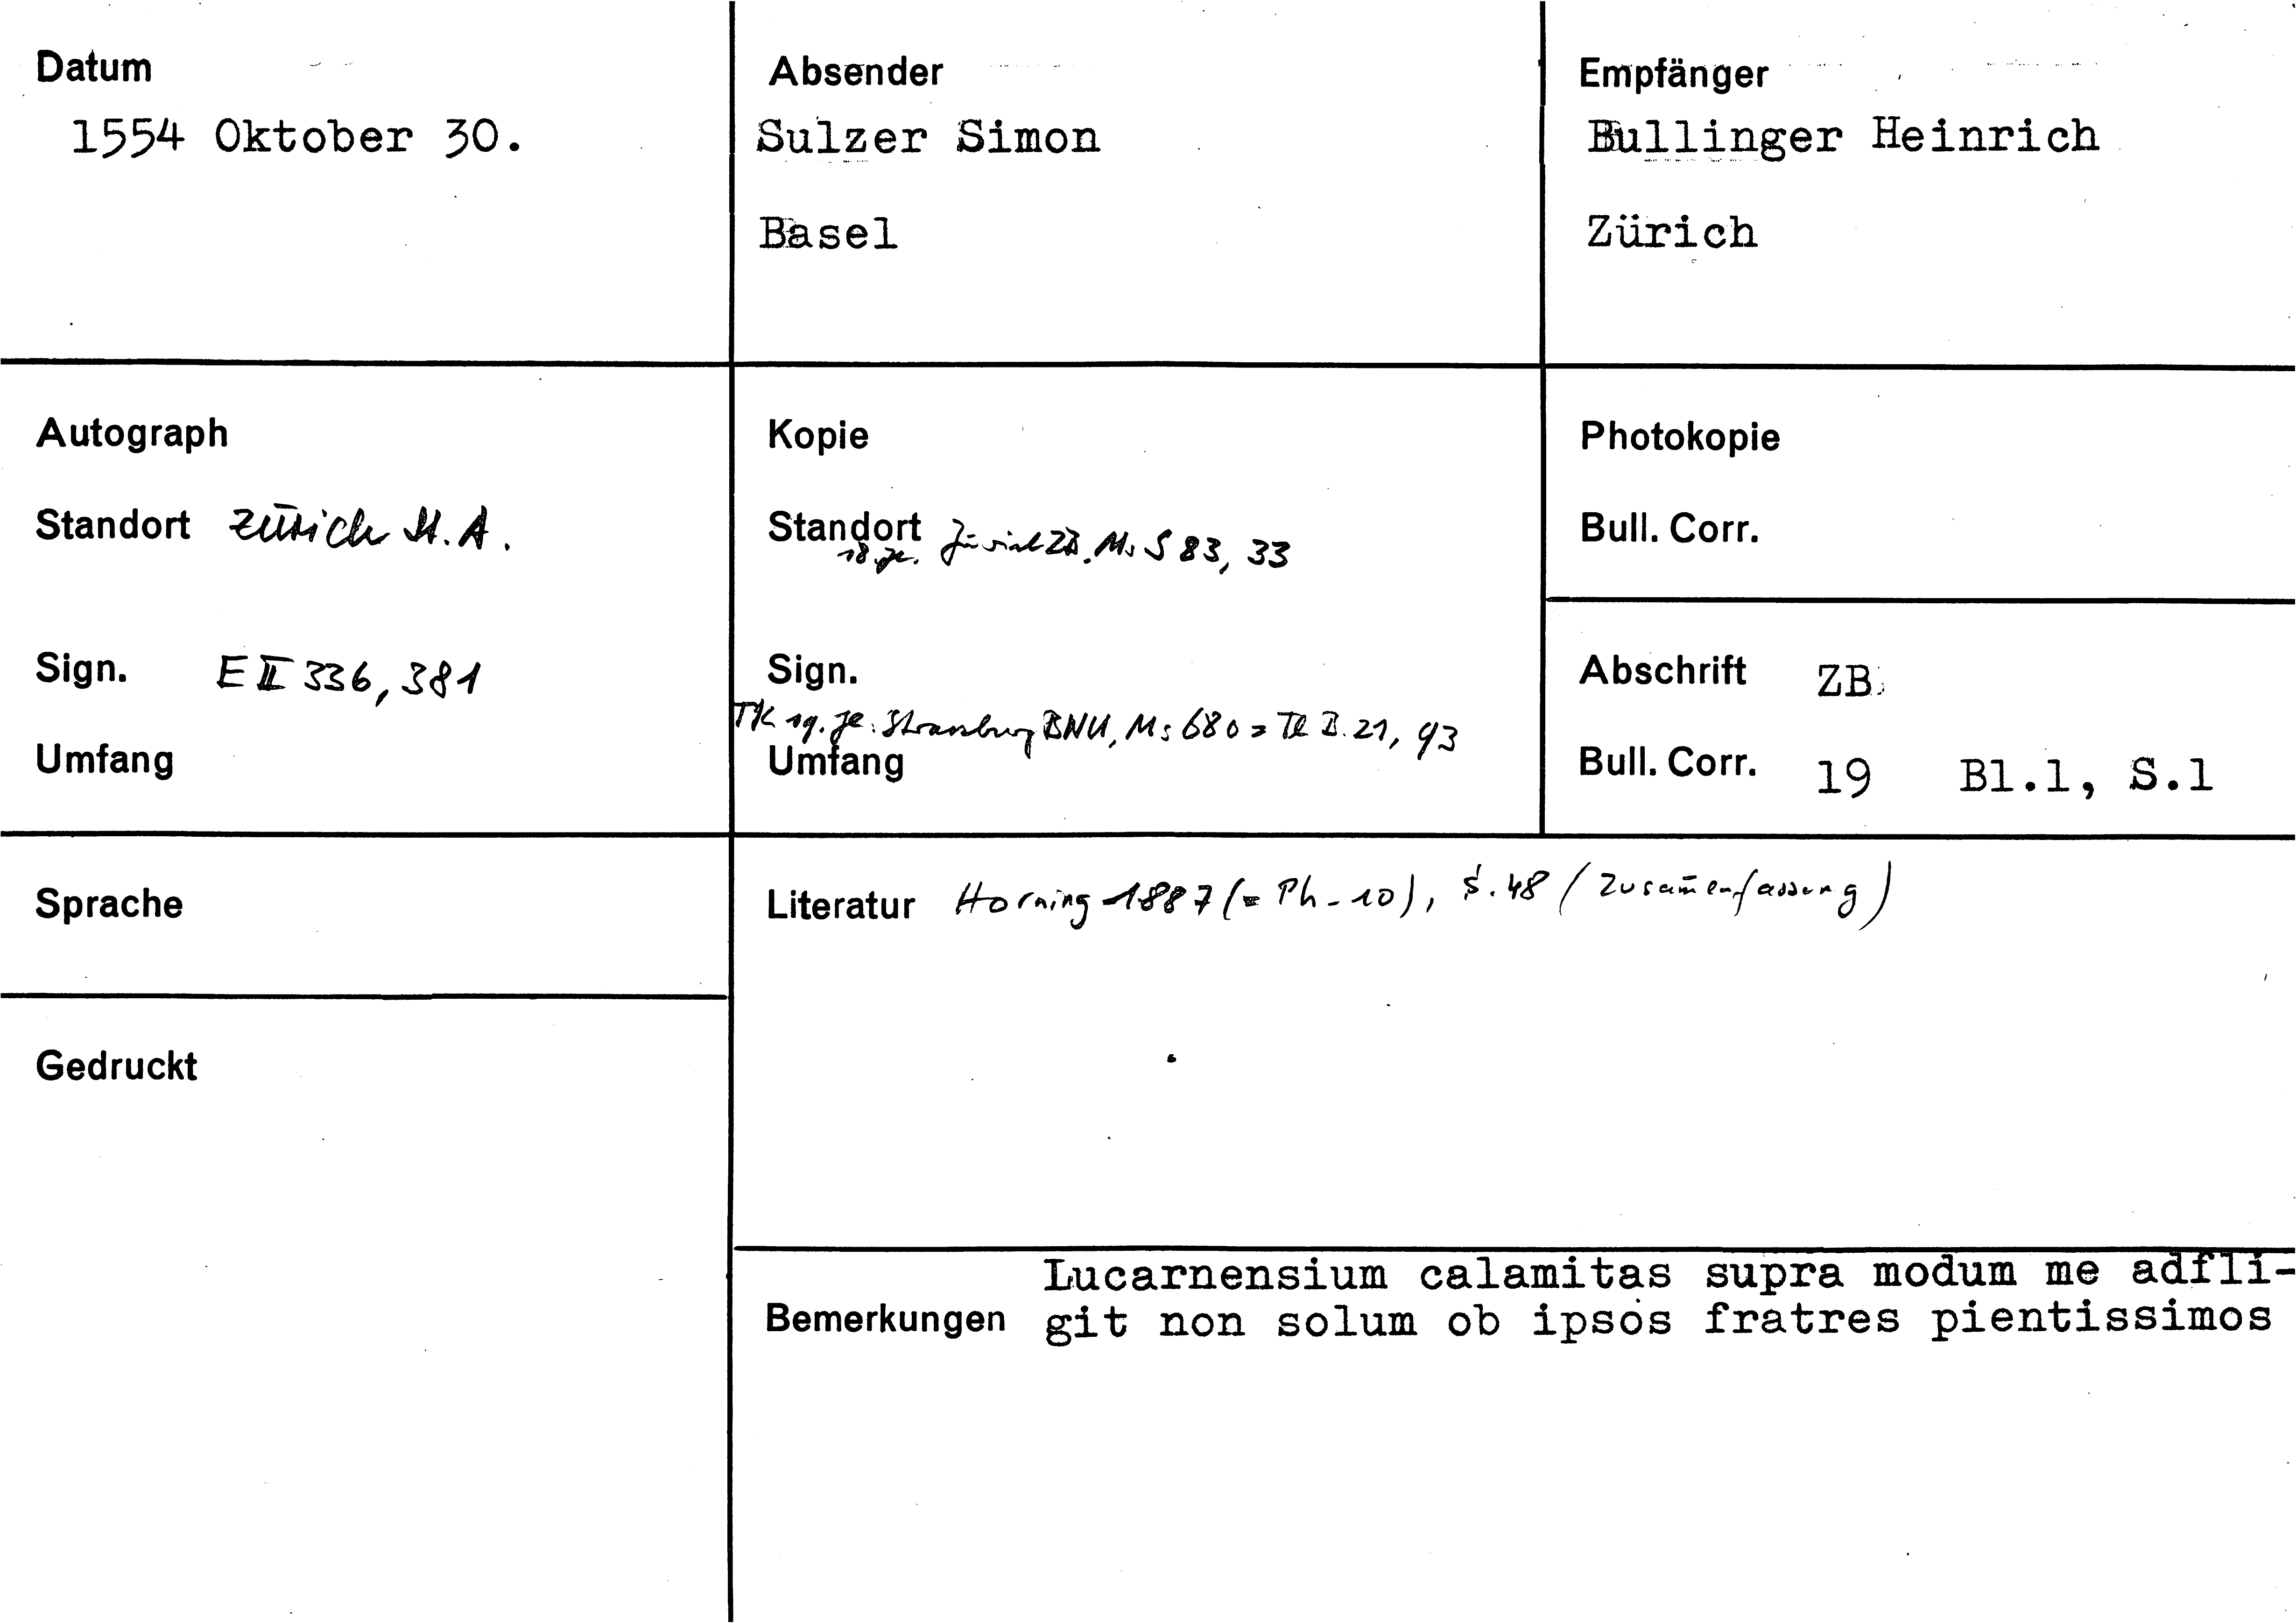 Datum
1554 Oktober 30.
Absender
Sulzer Simon
Basel
Empfänger
Bullinger Heinrich
Zürich
Autograph
Standort Zürich St.A.
Sign. E II 336, 381
Umfang
Kopie
Standort
18. Jh. Zürich ZB. Ms S 83, 33
Sign.
TK 19. Jh. Strassburg BNU, Ms 680 = 21, 93
Umfang
Photokopie
Bull. Corr.
Abschrift ZB
Bull. Corr. 19 Bl.1, S.1
Sprache
Literatur Horning 1887 (= Ph-10), S. 48 (Zusam̄enfassung)
Gedruckt
Lucarnensium calamitas supra modum me adfli-
Bemerkungen git non solum ob ipsos fratres pientissimos